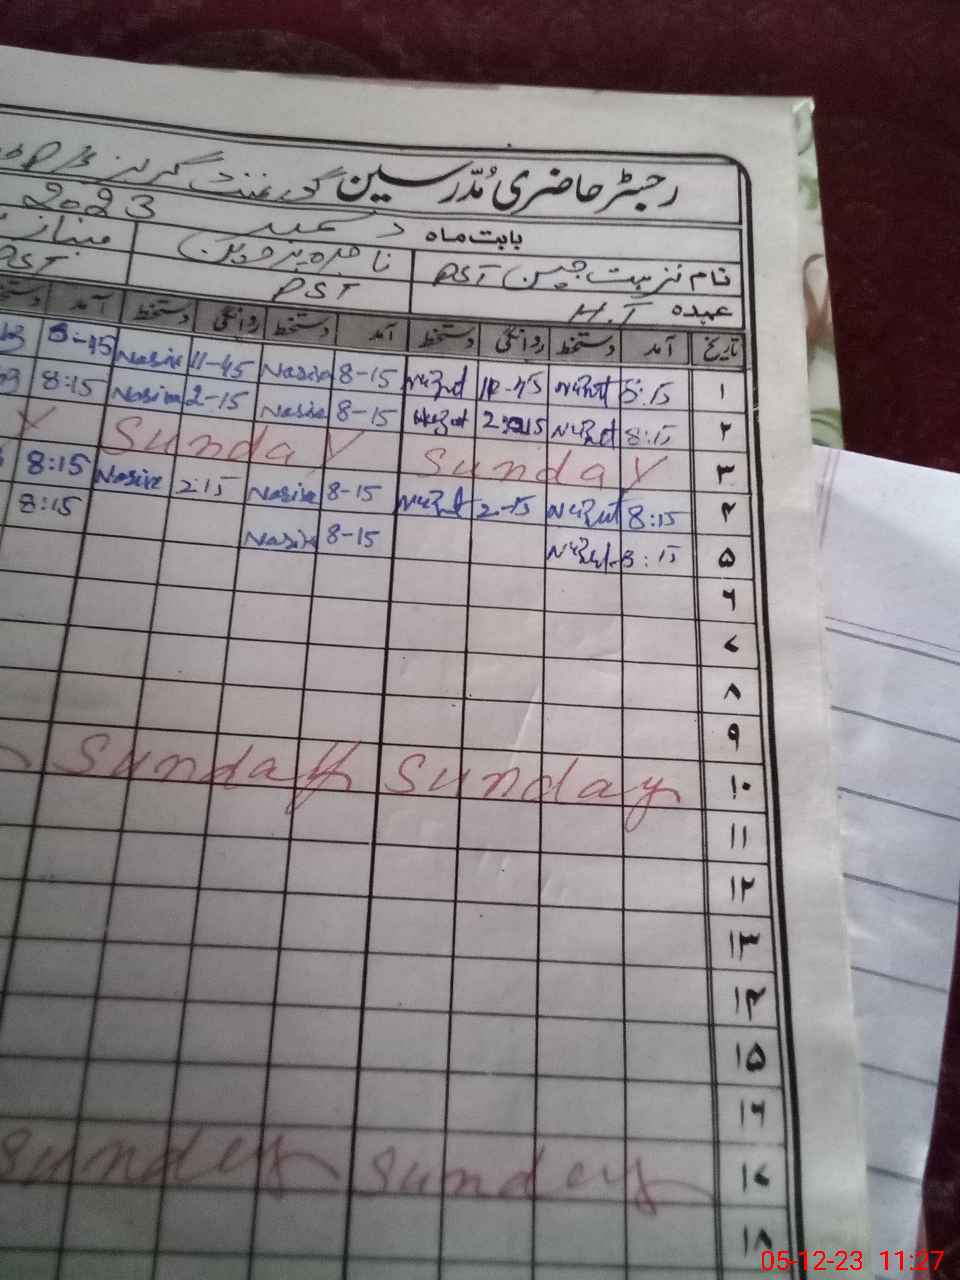 رجسٹر حاضری مُدرّسین گورنمنٹ گرلز
بابت ماہ دسمبر 2023
نام نزہت جبین PST ناصرہ پروین
عہدہ PST PST
تاریخ آمد دستخط روانگی دستخط آمد دستخط روانگی دستخط آمد
۱ 8:15 Nuzhat 11-45 Nuzhat 8-15 Nasira 11-45 Nasira 8-45
۲ 8:15 Nuzhat 2:15 Nuzhat 8-15 Nasira 2-15 Nasira 8:15
۳ Sunday Sunday
۴ 8:15 Nuzhat 2-15 Nuzhat 8-15 Nasira 2:15 Nasira 8:15
۵ 8:15 Nuzhat 8-15 Nasira 8:15
۶
۷
۸
۹
۱۰ Sunday Sunday
۱۱
۱۲
۱۳
۱۴
۱۵
۱۶
۱۷ Sunday Sunday
۱۸
05-12-23 11:27